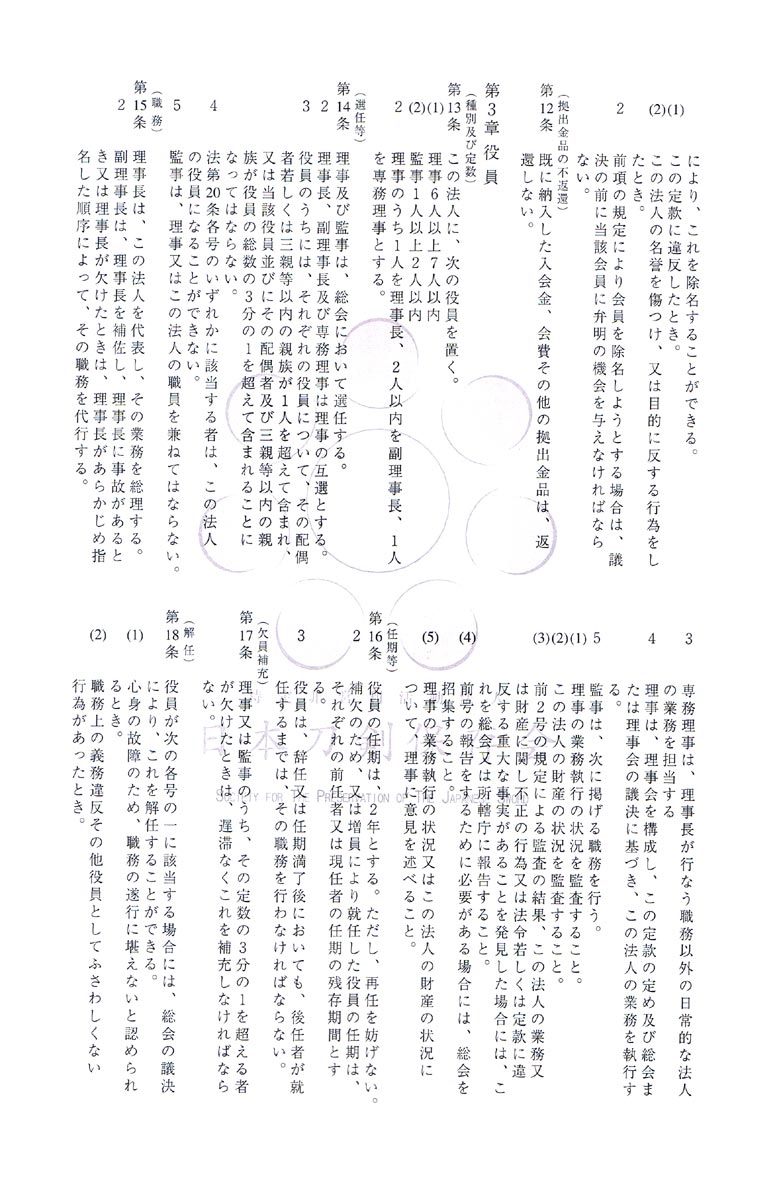 により、これを除名することができる。
(1) この定款に違反したとき。
(2) この法人の名誉を傷つけ、又は目的に反する行為をし
たとき。
2 前項の規定により会員を除名しようとする場合は、議
決の前に当該会員に弁明の機会を与えなければなら
ない。
(拠出金品の不返還)
第12条 既に納入した入会金、会費その他の拠出金品は、返
還しない。
第3章 役員
(種別及び定数)
第13条 この法人に、次の役員を置く。
(1) 理事6人以上7人以内
(2) 監事1人以上2人以内
2 理事のうち1人を理事長、2人以内を副理事長、1人
を専務理事とする。
(選任等)
第14条 理事及び監事は、総会において選任する。
2 理事長、副理事長及び専務理事は理事の互選とする。
3 役員のうちには、それぞれの役員について、その配偶
者若しくは三親等以内の親族が1人を超えて含まれ、
又は当該役員並びにその配偶者及び三親等以内の親
族が役員の総数の3分の1を超えて含まれることに
なってはならない。
4 法第20条各号のいずれかに該当する者は、この法人
の役員になることができない。
5 監事は、理事又はこの法人の職員を兼ねてはならない。
(職務)
第15条 理事長は、この法人を代表し、その業務を総理する。
2 副理事長は、理事長を補佐し、理事長に事故があると
き又は理事長が欠けたときは、理事長があらかじめ指
名した順序によって、その職務を代行する。
3 専務理事は、理事長が行なう職務以外の日常的な法人
の業務を担当する
4 理事は、理事会を構成し、この定款の定め及び総会ま
たは理事会の議決に基づき、この法人の業務を執行す
る。
5 監事は、次に掲げる職務を行う。
(1) 理事の業務執行の状況を監査すること。
(2) この法人の財産の状況を監査すること。
(3) 前2号の規定による監査の結果、この法人の業務又
は財産に関し不正の行為又は法令若しくは定款に違
反する重大な事実があることを発見した場合には、こ
れを総会又は所轄庁に報告すること。
(4) 前号の報告をするために必要がある場合には、総会を
招集すること。
(5) 理事の業務執行の状況又はこの法人の財産の状況に
ついて、理事に意見を述べること。
(任期等)
第16条 役員の任期は、2年とする。ただし、再任を妨げない。
2 補欠のため、又は増員により就任した役員の任期は、
それぞれの前任者又は現任者の任期の残存期間とす
る。
3 役員は、辞任又は任期満了後においても、後任者が就
任するまでは、その職務を行わなければならない。
(欠員補充)
第17条 理事又は監事のうち、その定数の3分の1を超える者
が欠けたときは、遅滞なくこれを補充しなければなら
ない。
(解任)
第18条 役員が次の各号の一に該当する場合には、総会の議決
により、これを解任することができる。
(1) 心身の故障のため、職務の遂行に堪えないと認められ
るとき。
(2) 職務上の義務違反その他役員としてふさわしくない
行為があったとき。
日本刀剣保存会
SOCIETY FOR THE PRESERVATION OF THE JAPANESE SWORD